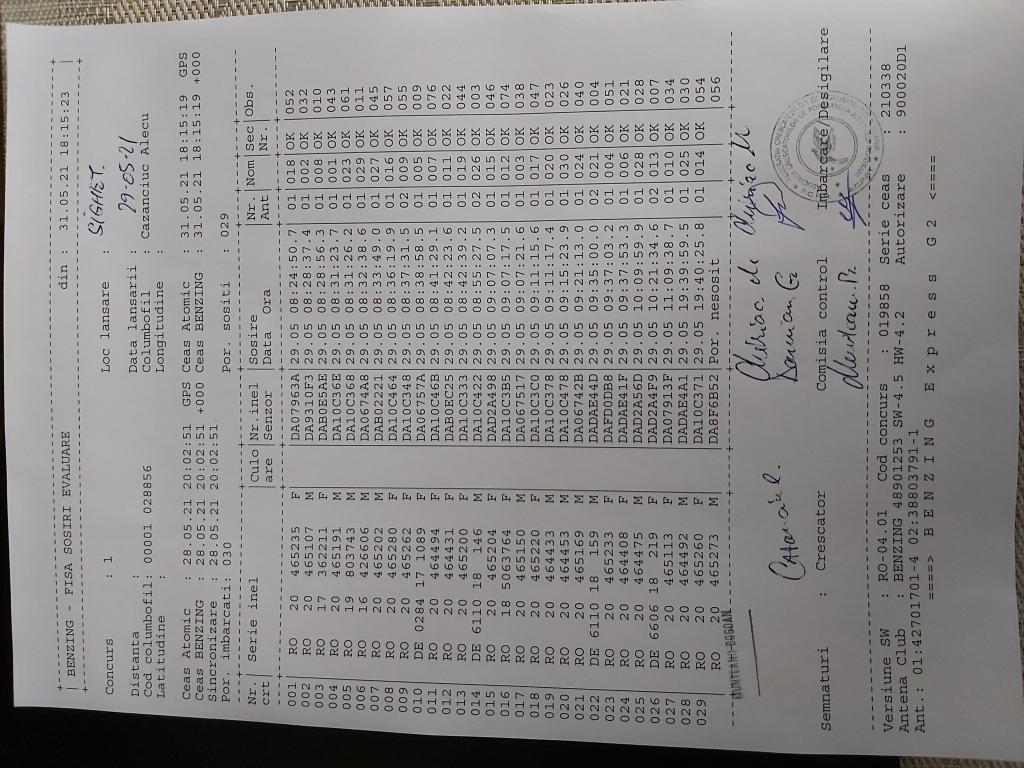 | BENZING - FISA SOSIRI EVALUARE din : 31.05.21 18:15:23 |
Concurs : 1 Loc lansare : SIGHET.
Distanta : Data lansarii : 29-05-21
Cod columbofil: 00001 028856 Columbofil : Cazanciuc Alecu
Latitudine : Longitudine :
Ceas Atomic : 28.05.21 20:02:51 GPS Ceas Atomic : 31.05.21 18:15:19 GPS
Ceas BENZING : 28.05.21 20:02:51 +000 Ceas BENZING : 31.05.21 18:15:19 +000
Sincronizare : 28.05.21 20:02:51
Por. imbarcati: 030 Por. sositi : 029
Nr. | Serie inel |Culo|Nr inel |Sosire |Nr. |Nom|Sec|Obs.
crt | |are |Senzor |Data Ora |Ant | |Nr.|
001 | RO 20 465235 F | |DA07963A|29.05 08:24:50.7|01 |018|OK |052
002 | RO 20 465107 M | |DA9310F3|29.05 08:28:37.4|01 |002|OK |032
003 | RO 17 362211 F | |DAB0E5AE|29.05 08:28:56.3|01 |008|OK |010
004 | RO 20 465191 M | |DA10C36E|29.05 08:31:23.7|01 |001|OK |043
005 | RO 19 803743 M | |DA10C368|29.05 08:31:26.2|01 |023|OK |061
006 | RO 16 426606 M | |DA0674A8|29.05 08:32:38.6|01 |029|OK |011
007 | RO 20 465202 M | |DAB0E221|29.05 08:33:49.0|01 |027|OK |045
008 | RO 20 465240 F | |DA10C464|29.05 08:36:19.9|01 |016|OK |057
009 | RO 20 465262 F | |DA10C348|29.05 08:37:31.5|02 |009|OK |055
010 | DE 0284 17 1089 F | |DA06757A|29.05 08:38:58.5|01 |005|OK |009
011 | RO 20 464494 F | |DA10C46B|29.05 08:41:29.1|01 |007|OK |076
012 | RO 20 464431 F | |DAB0EC25|29.05 08:42:23.6|01 |011|OK |022
013 | RO 20 465200 F | |DA10C333|29.05 08:42:39.2|01 |019|OK |044
014 | DE 6110 18 146 M | |DA10C422|29.05 08:55:27.5|02 |026|OK |003
015 | RO 20 465204 F | |DAD2A498|29.05 09:07:07.3|01 |015|OK |046
016 | RO 18 5063764 F | |DA10C3B5|29.05 09:07:17.5|01 |012|OK |074
017 | RO 20 465150 M | |DA067517|29.05 09:07:21.6|01 |003|OK |038
018 | RO 20 465220 F | |DA10C3C0|29.05 09:11:15.6|01 |017|OK |047
019 | RO 20 464433 M | |DA10C378|29.05 09:11:17.4|01 |020|OK |023
020 | RO 20 464453 M | |DA10C478|29.05 09:15:23.9|01 |030|OK |026
021 | RO 20 465169 M | |DA06742B|29.05 09:21:13.0|01 |024|OK |040
022 | DE 6110 18 159 M | |DADAE44D|29.05 09:35:00.0|02 |021|OK |004
023 | RO 20 465233 F | |DAFD0DB8|29.05 09:37:03.2|01 |004|OK |051
024 | RO 20 464408 F | |DADAE41F|29.05 09:37:53.3|01 |006|OK |021
025 | RO 20 464475 M | |DAD2A56D|29.05 10:09:59.9|01 |028|OK |028
026 | DE 6606 18 219 F | |DAD2A4F9|29.05 10:21:34.6|02 |013|OK |007
027 | RO 20 465113 F | |DA07913F|29.05 11:09:38.7|01 |010|OK |034
028 | RO 20 464492 M | |DADAE4A1|29.05 19:39:59.5|01 |025|OK |030
029 | RO 20 465260 F | |DA10C371|29.05 19:40:25.8|01 |014|OK |054
RO 20 465273 M | |DA8F6B52|Por. nesosit | | | |056
MUNTEANU BOGDAN
Semnaturi : Crescator Comisia control Imbarcare Desigilare
Versiune SW : RO-04.01 Cod concurs : 019858 Serie ceas : 210338
Antena Club : BENZING 48901253 SW-4.5 HW-4.2 Autorizare : 900020D1
Ant.: 01:42701701-4 02:38803791-1
====> B E N Z I N G E x p r e s s G 2 <====